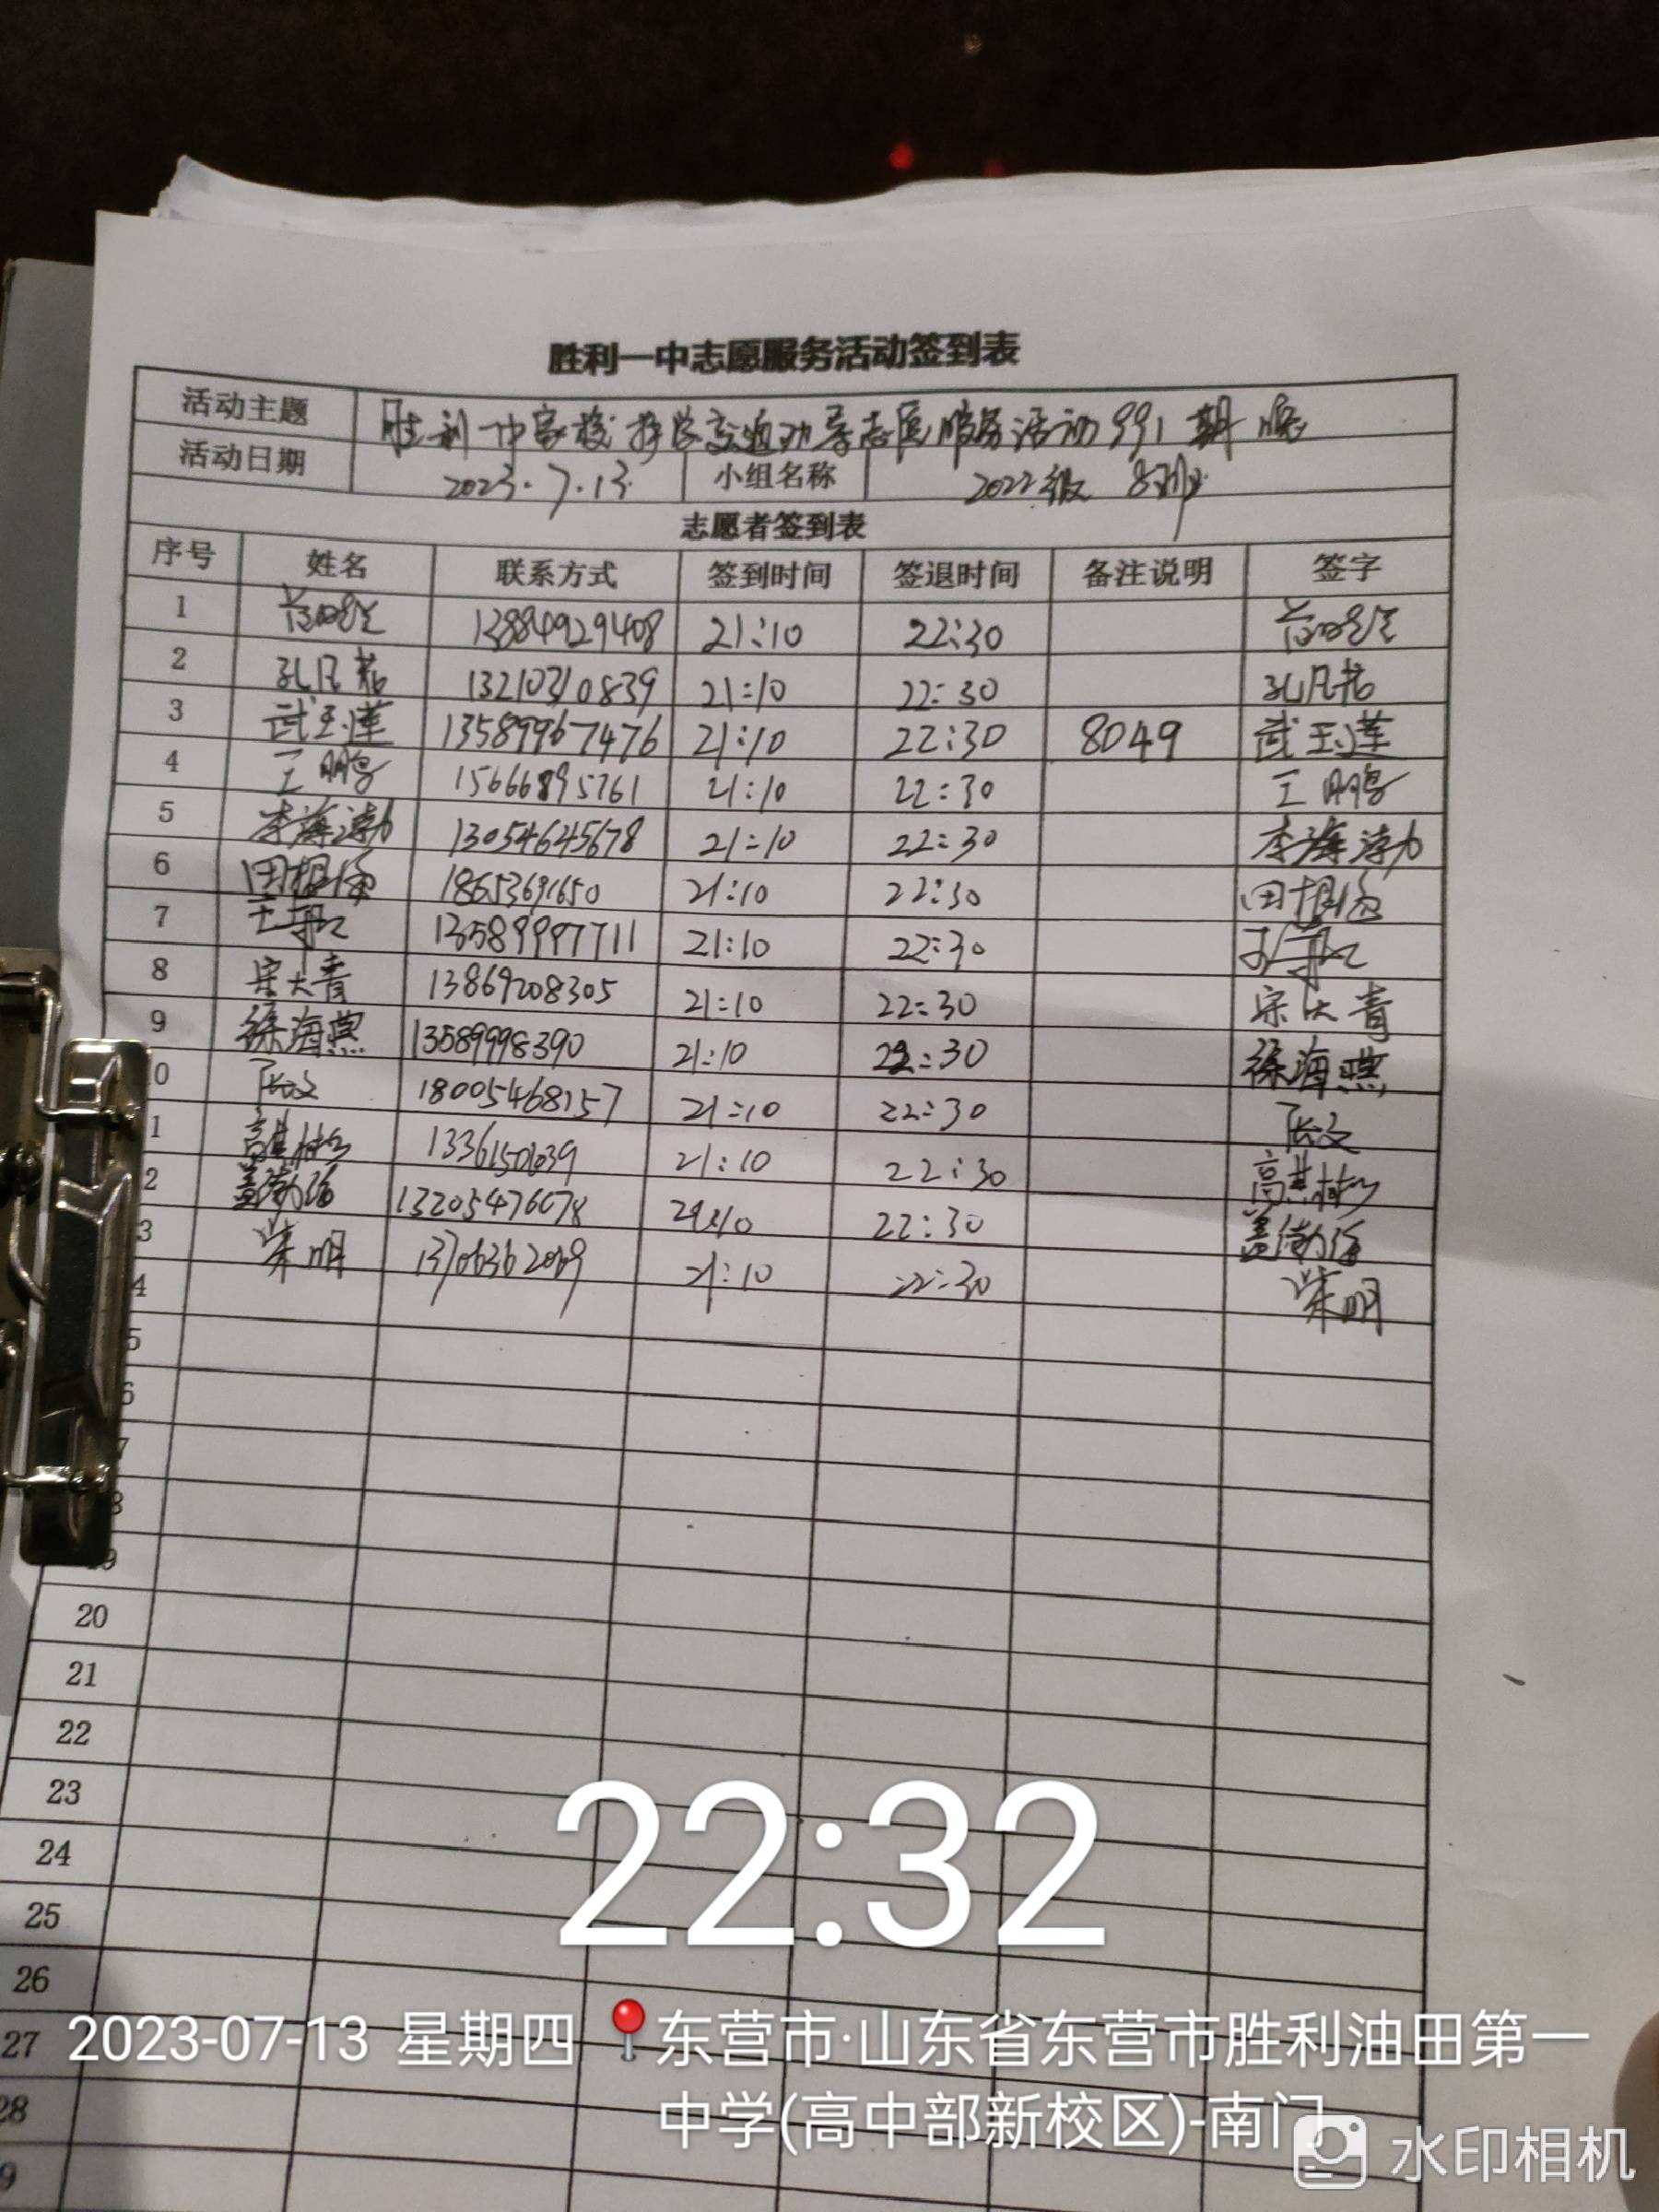 胜利一中志愿服务活动签到表
活动主题 胜利一中家校护学交通劝导志愿服务活动991期晚
活动日期 2023.7.13 小组名称 2022级 8班
志愿者签到表
序号 姓名 联系方式 签到时间 签退时间 备注说明 签字
1 13884929408 21:10 22:30
2 孔凡茗 13210310839 21:10 22:30 孔凡茗
3 武玉莲 13589967476 21:10 22:30 8049 武玉莲
4 王鹏 15666895761 21:10 22:30 王鹏
5 李海渤 13054645678 21:10 22:30 李海渤
6 21:10 22:30
7 13589997711 21:10 22:30
8 宋大青 13869208305 21:10 22:30 宋大青
9 徐海燕 13589998390 21:10 22:30 徐海燕
0 张文 18005468157 21:10 22:30 张文
1 21:10 22:30
2 22:30
3 明 13706362069 21:10 22:30 明
4
5
6
7
8
19
20
21
22
23
24
25
26
27
28
9
22:32
2023-07-13 星期四 东营市·山东省东营市胜利油田第一
中学(高中部新校区)-南门
水印相机